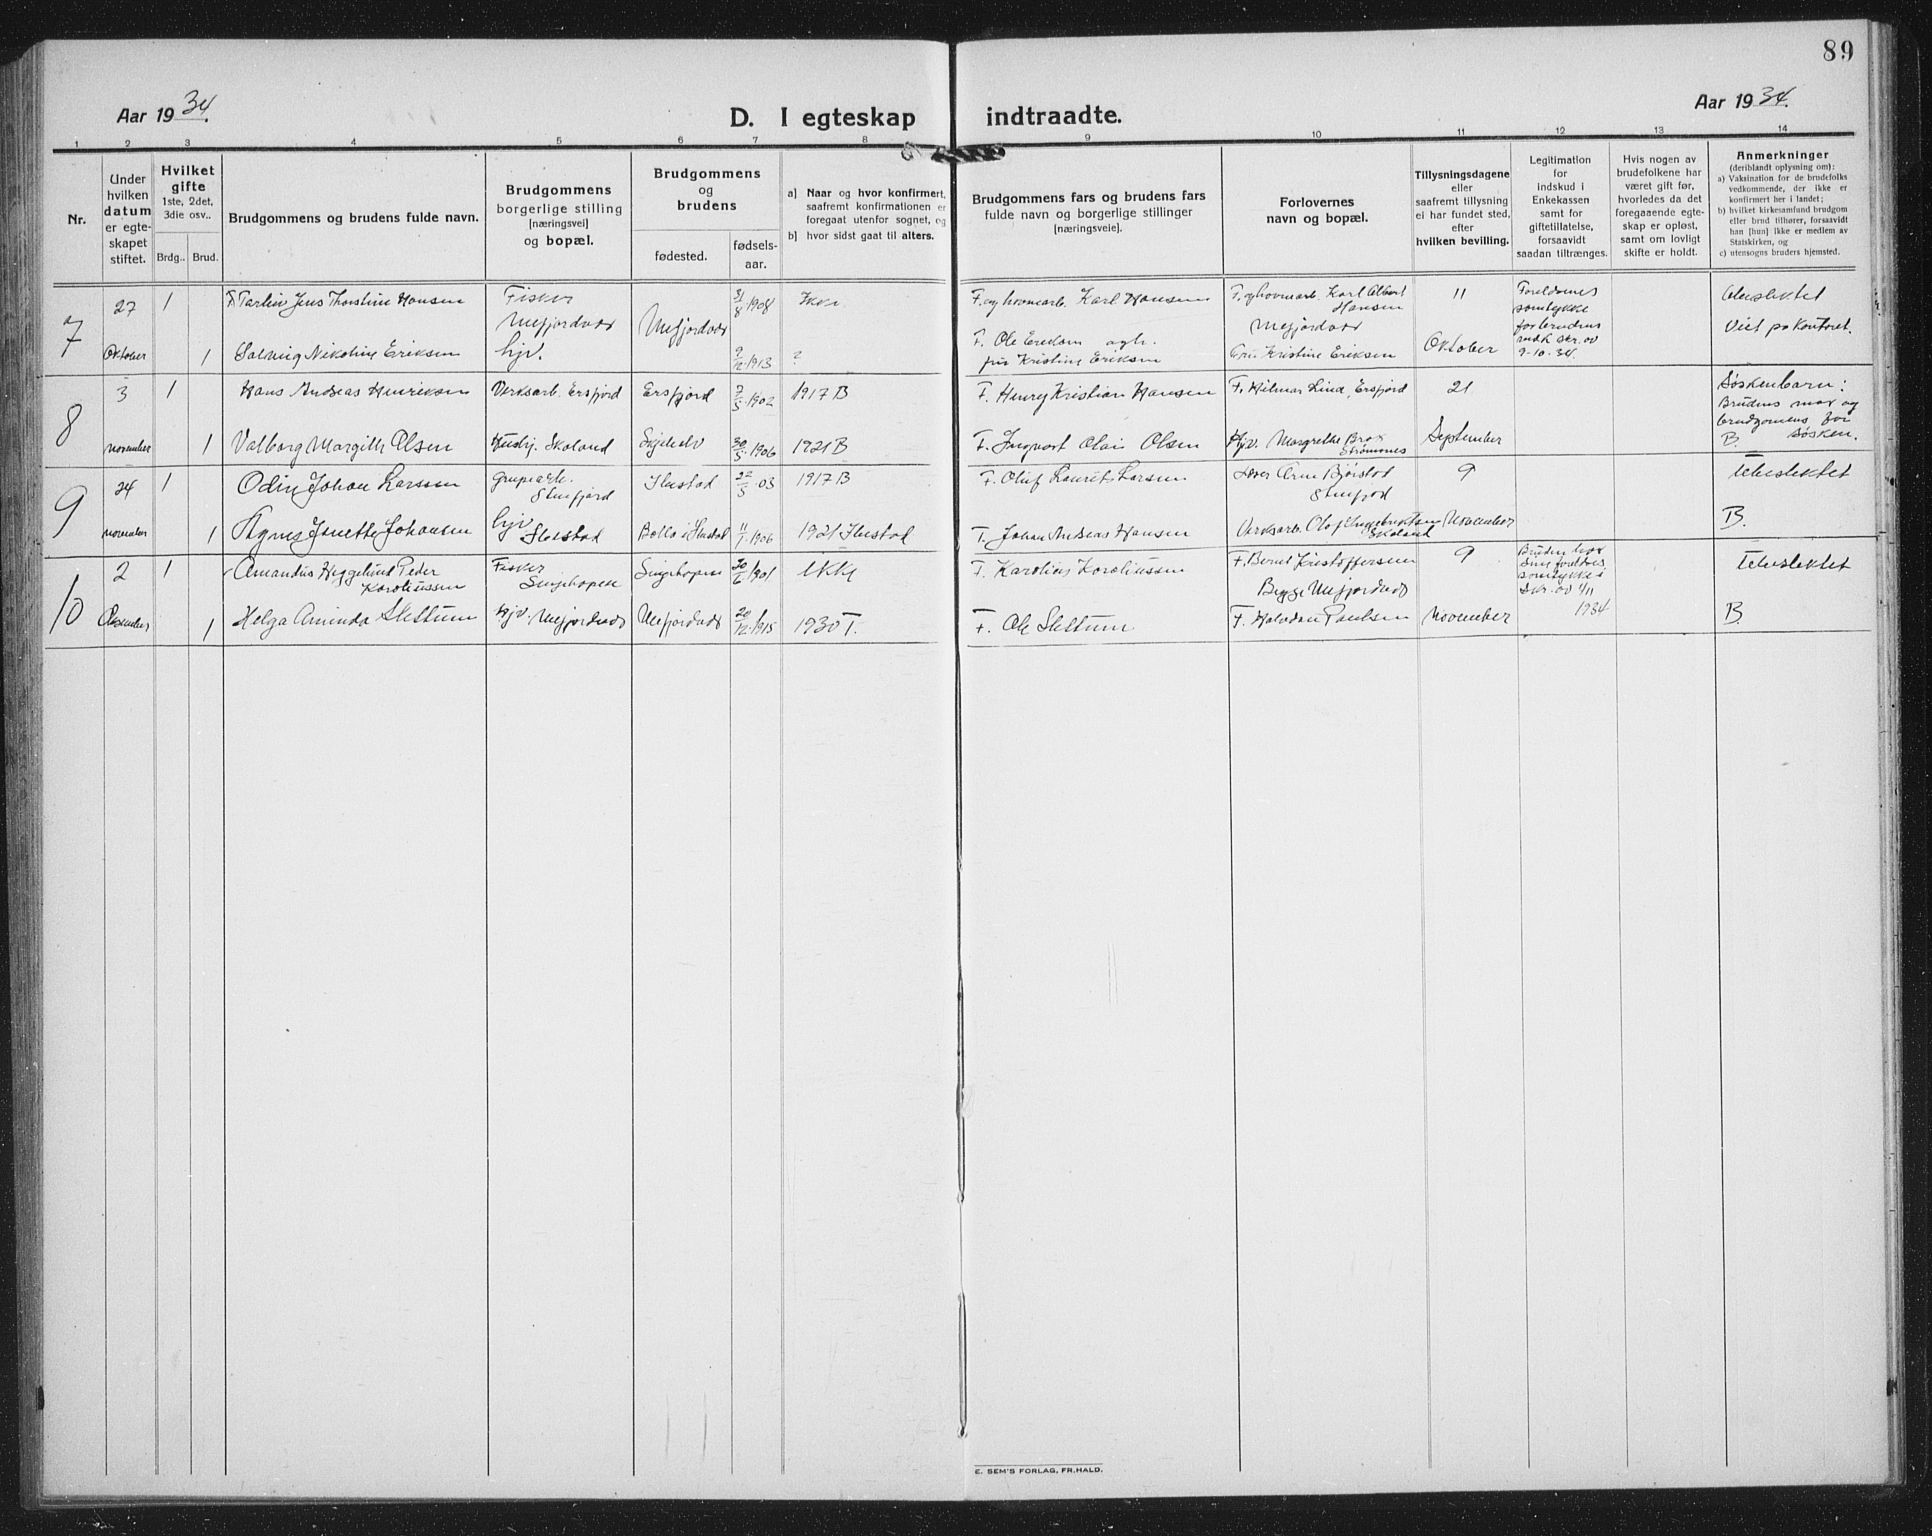 89
Aar 1934.
D. I egteskap indtraadte.
Aar 1934.
1 2 3 4 5 6 7 8 9 10 11 12 13 14
Nr.
Under
hvilken
datum
er egte-
skapet
stiftet.
Hvilket
gifte
1ste, 2det,
3die osv..
Brdg..
Brud.
Brudgommens og brudens fulde navn.
Brudgommens
borgerlige stilling
[næringsvei]
og bopæl.
Brudgommens
og
brudens
fødested.
fødsels-
aar.
a] Naar og hvor konfirmert,
saafremt konfirmationen er
foregaat utenfor sognet, og
b] hvor sidst gaat til alters.
Brudgommens fars og brudens fars
fulde navn og borgerlige stillinger
[næringsveie].
Forlovernes
navn og bopæl.
Tillysningsdagene
eller
saafremt tillysning
ei har fundet sted,
efter
hvilken bevilling.
Legitimation
for
indskud i
Enkekassen
samt for
giftetillatelse,
forsaavidt
saadan tiltrænges.
Hvis nogen av
brudefolkene har
været gift før,
hvorledes da det
foregaaende egte-
skap er opløst,
samt om lovligt
skifte er holdt.
Anmerkninger
(deriblandt oplysning om):
a) Vaksination for de brudefolks
vedkommende, der ikke er
konfirmert her i landet;
b) hvilket kirkesamfund brudgom
eller brud tilhører, forsaavidt
han [hun] ikke er medlem av
Statskirken, og
c) utensogns bruders hjemsted.
7
27
Oktober
1
Jens Thorstein Hansen
Fisker
Mefjordvær
Mefjordvær
31/8 1908
F. og hovmarb. Karl Hansen
F. og hovmarb. Karl Albert
Hansen
Mefjordvær
11
Oktober
Foreldrenes
samtykke
for brudens
9-10-34.
Ubeslektet
Viet på kontoret.
1
Solveig Nikoline Eriksen
hjv.
1913
?
F. Ole Eriksen
fru Kristine Eriksen
Fru Kristine Eriksen
8
3
november
1
Hans Andreas Henriksen
Verksarb. Ersfjord
Ersfjord
1902
1917 B
F. Henry Kristian Hansen
F. Hilmar Lind, Ersfjord
21
September
Søskenbarn:
Brudens mor og
brudgomens far
søsken.
B.
1
Valborg Margith Olsen
Hushj. Skaland
30/5 1906
1921 B
F. Ingvart Olai Olsen
Hjv. Margrethe Brox
Strømsnes
9
24
november
1
Odin Johan Larssen
Grupearb.
22/5 03
1917 B
F. Oluf Laurits Larsen
Arne Bjørstad
9
November
Ubeslektet
B.
1
Agnes Jenette Johansen
hjv
11/1 1906
1921
F. Johan Andreas Hansen
Verksarb. Olof Ingebriktsen
Skaland
10
2
Desember
1
Amandus Heggelund Peder
Karoliussen
Fisker
Senjehopen
Senjehopen
20/6 1901
Ikke
F. Karolius Karoliussen
F. Bernt Kristoffersen
Begge Mefjordvær
9
November
Bruden har
sine foreldres
samtykke i
skr. av 1/11
1934
Ubeslektet
B.
1
Helga Aminda Slettum
Hjv. Mefjordvær
Mefjordvær
20/12 1915
1930 T.
F. Ole Slettum
F. Halvdan Paulsen
E. SEM'S FORLAG, FR.HALD.